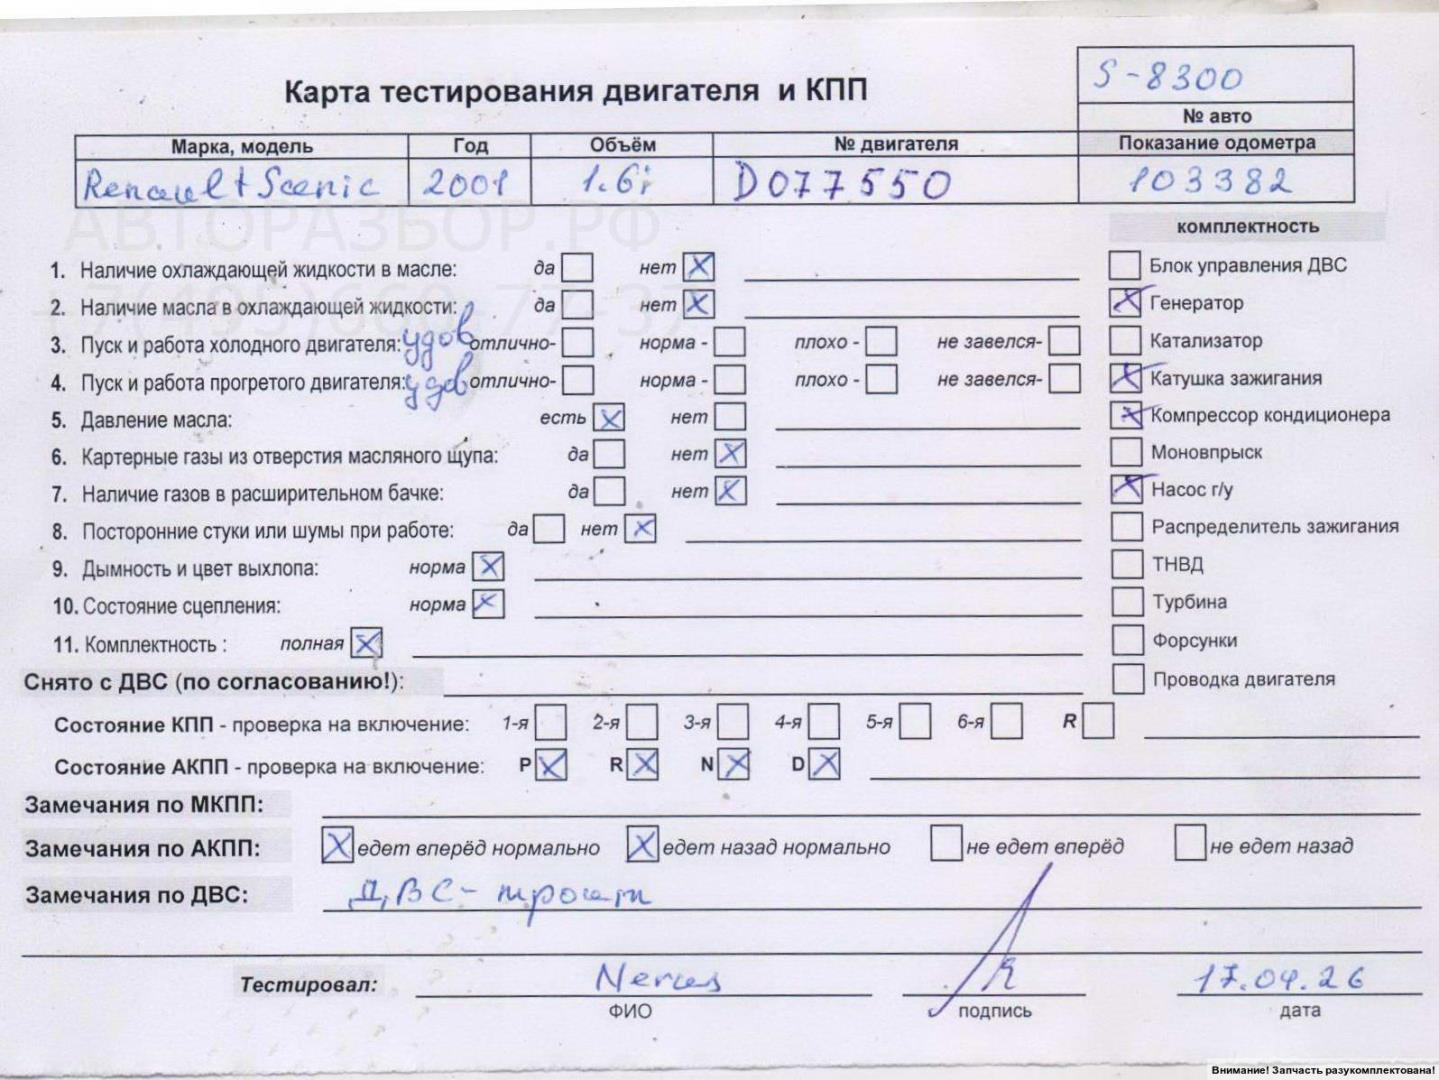 S-8300
Карта тестирования двигателя и КПП
№ авто
Марка, модель Год Объём № двигателя Показание одометра
Renault Scenic 2001 1.6i D077550 103382
АВТОРАЗБОР.РФ
комплектность
1. Наличие охлаждающей жидкости в масле: да нет Блок управления ДВС
2. Наличие масла в охлаждающей жидкости: да нет Генератор
3. Пуск и работа холодного двигателя: удов отлично- норма - плохо - не завелся- Катализатор
4. Пуск и работа прогретого двигателя: удов отлично- норма - плохо - не завелся- Катушка зажигания
5. Давление масла: есть нет Компрессор кондиционера
6. Картерные газы из отверстия масляного щупа: да нет Моновпрыск
7. Наличие газов в расширительном бачке: да нет Насос г/у
8. Посторонние стуки или шумы при работе: да нет Распределитель зажигания
9. Дымность и цвет выхлопа: норма ТНВД
10. Состояние сцепления: норма Турбина
11. Комплектность : полная Форсунки
Снято с ДВС (по согласованию!): Проводка двигателя
Состояние КПП - проверка на включение: 1-я 2-я 3-я 4-я 5-я 6-я R
Состояние АКПП - проверка на включение: P R N D
Замечания по МКПП:
Замечания по АКПП: едет вперёд нормально едет назад нормально не едет вперёд не едет назад
Замечания по ДВС: ДВС- троит
Тестировал: 17.04.26
ФИО подпись дата
Внимание! Запчасть разукомплектована!